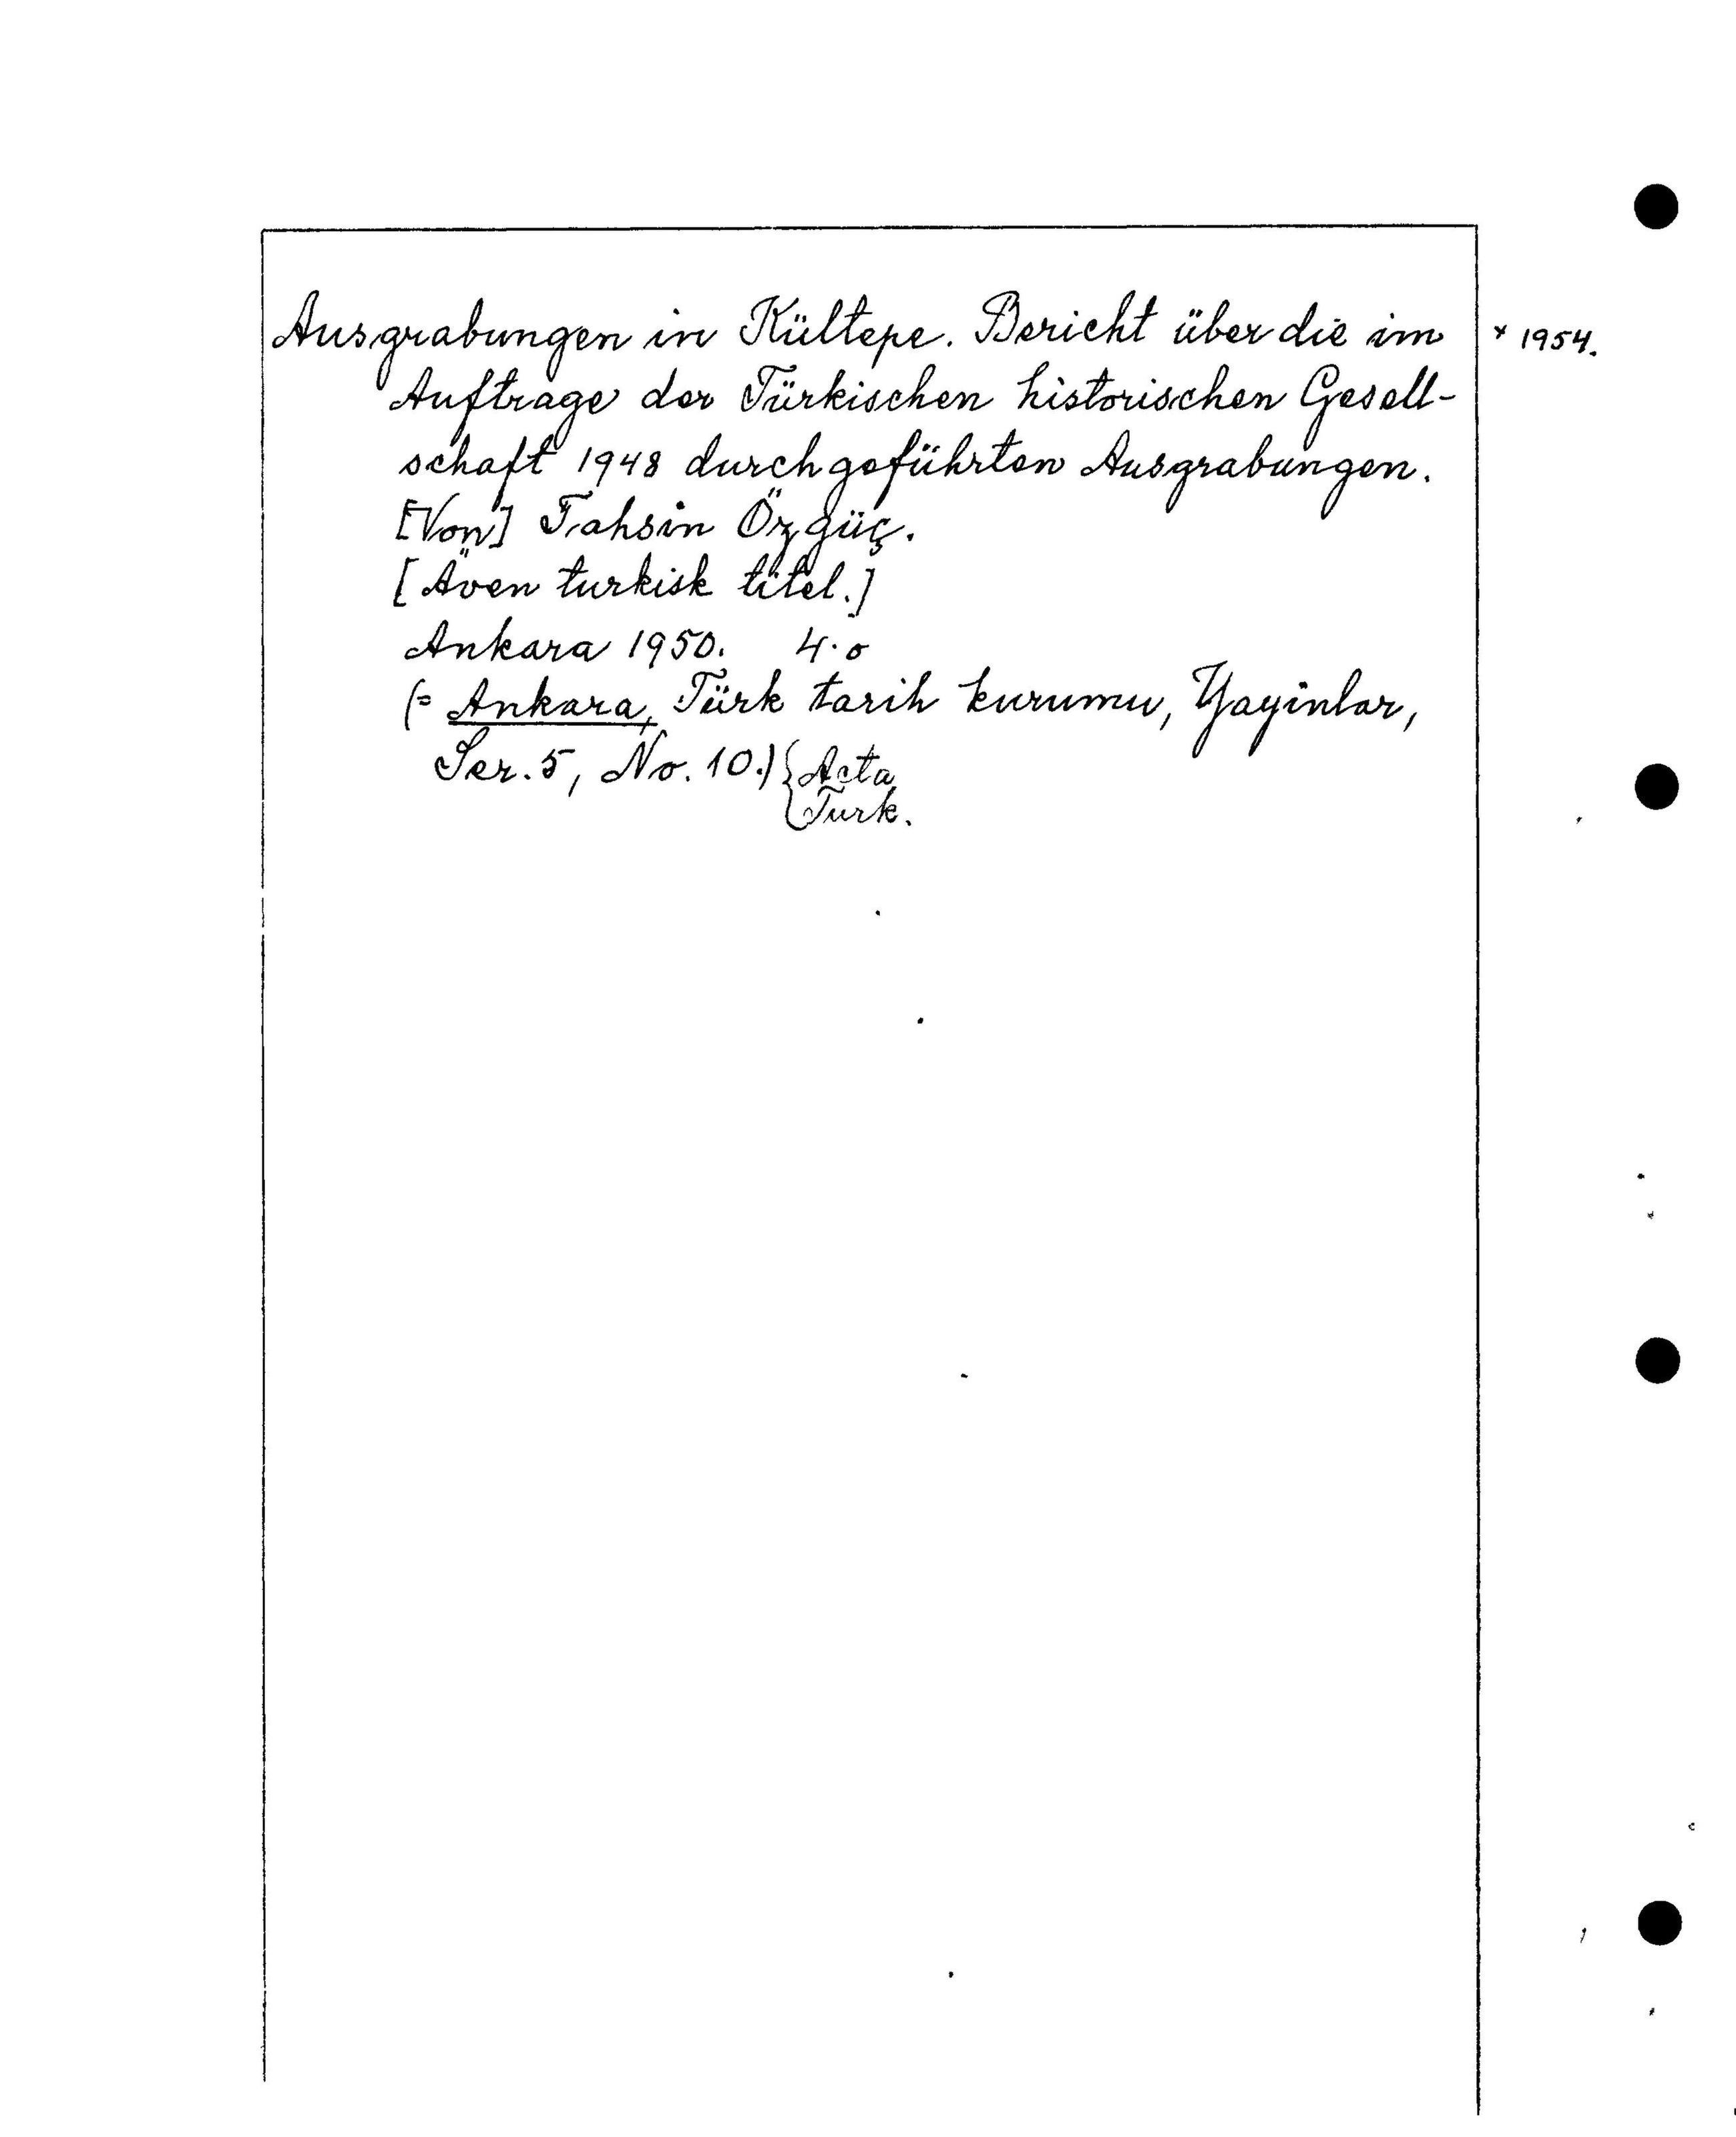 Ausgrabungen in Kültepe. Bericht über die im × 1954.
Auftrage der Türkischen historischen Gesell-
schaft 1948 durchgeführten Ausgrabungen.
[Von] Tahsin Özgüç.
[Även turkisk titel.]
Ankara 1950. 4:o
(= Ankara, Türk tarih kurumu, Yayinlar,
Ser. 5, No. 10.) {Acta
Turk.